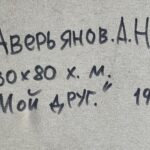 Аверьянов.А.Н
80х80 х.м.
Мой друг." 19